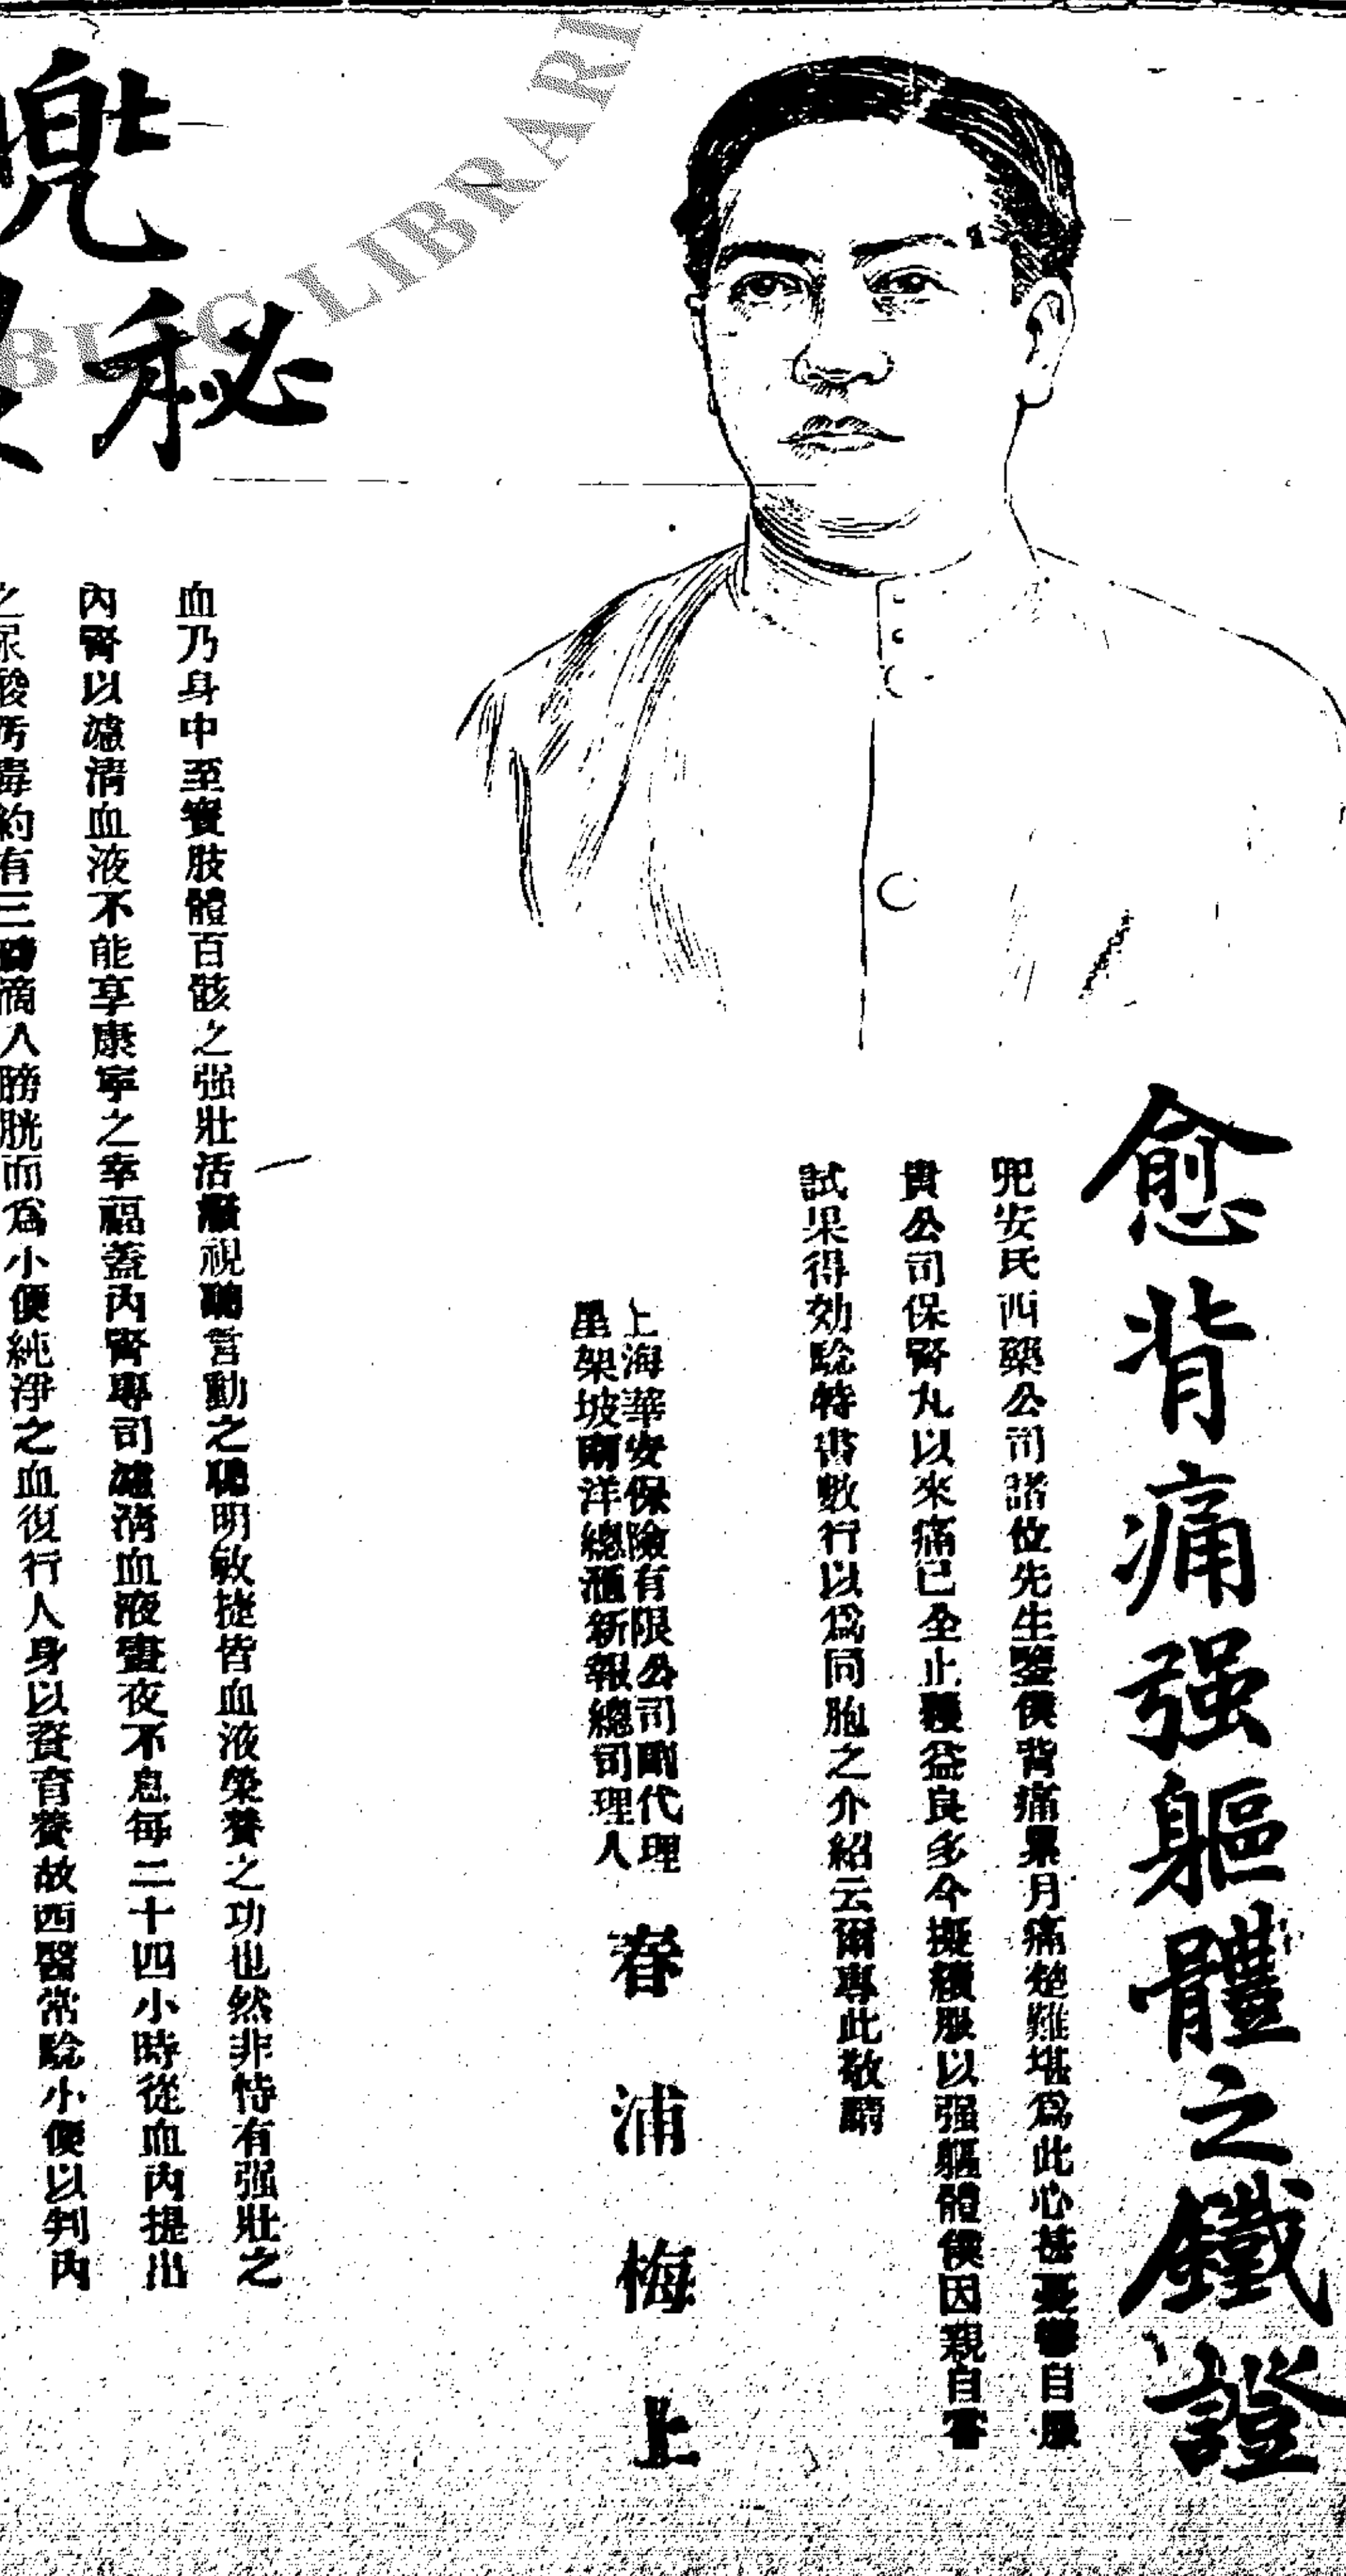 愈背痛强軀體之鐵證
兜安氏西藥公司諸位先生鑒僕背痛累月痛楚難堪爲此心甚憂鬱自服
貴公司保腎丸以來痛已全止獲益良多今擬續服以强軀體僕因親自嘗
試果得効驗特書數行以爲同胞之介紹云爾專此敬請
上海華安保險有限公司副代理
星架坡南洋總滙新報總司理人
春浦梅上
兜
秘
血乃身中至寶肢體百骸之强壯活潑視聽言動之聰明敏捷皆血液榮養之功也然非恃有强壯之
內腎以濾清血液不能享康寧之幸福蓋內腎專司濾清血液晝夜不息每二十四小時從血內提出
之尿酸汚毒約有三磅滴入膀胱而爲小便純淨之血復行人身以資育養故西醫常驗小便以判內
BLIC LIBRARI